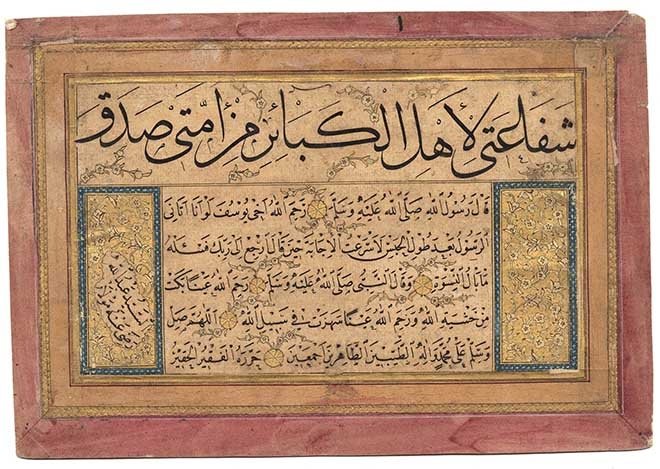 شفاعتى لأهل الكبائر من امتى صدق
قال رسول الله صلى الله عليه وسلم رحم الله اخى يوسف لو انا اتانى
الرسول بعد طول الحبس لاسرعت الاجابة حين قال ارجع الى ربك فسئله
ما بال النسوة وقال النبى صلى الله عليه وسلم رحم الله عينا بكت
من خشية الله ورحم الله عينا سهرت فى سبيل الله اللهم صل
وسلم على محمد واله الطيبين الطاهرين اجمعين حرره الفقير الحقير